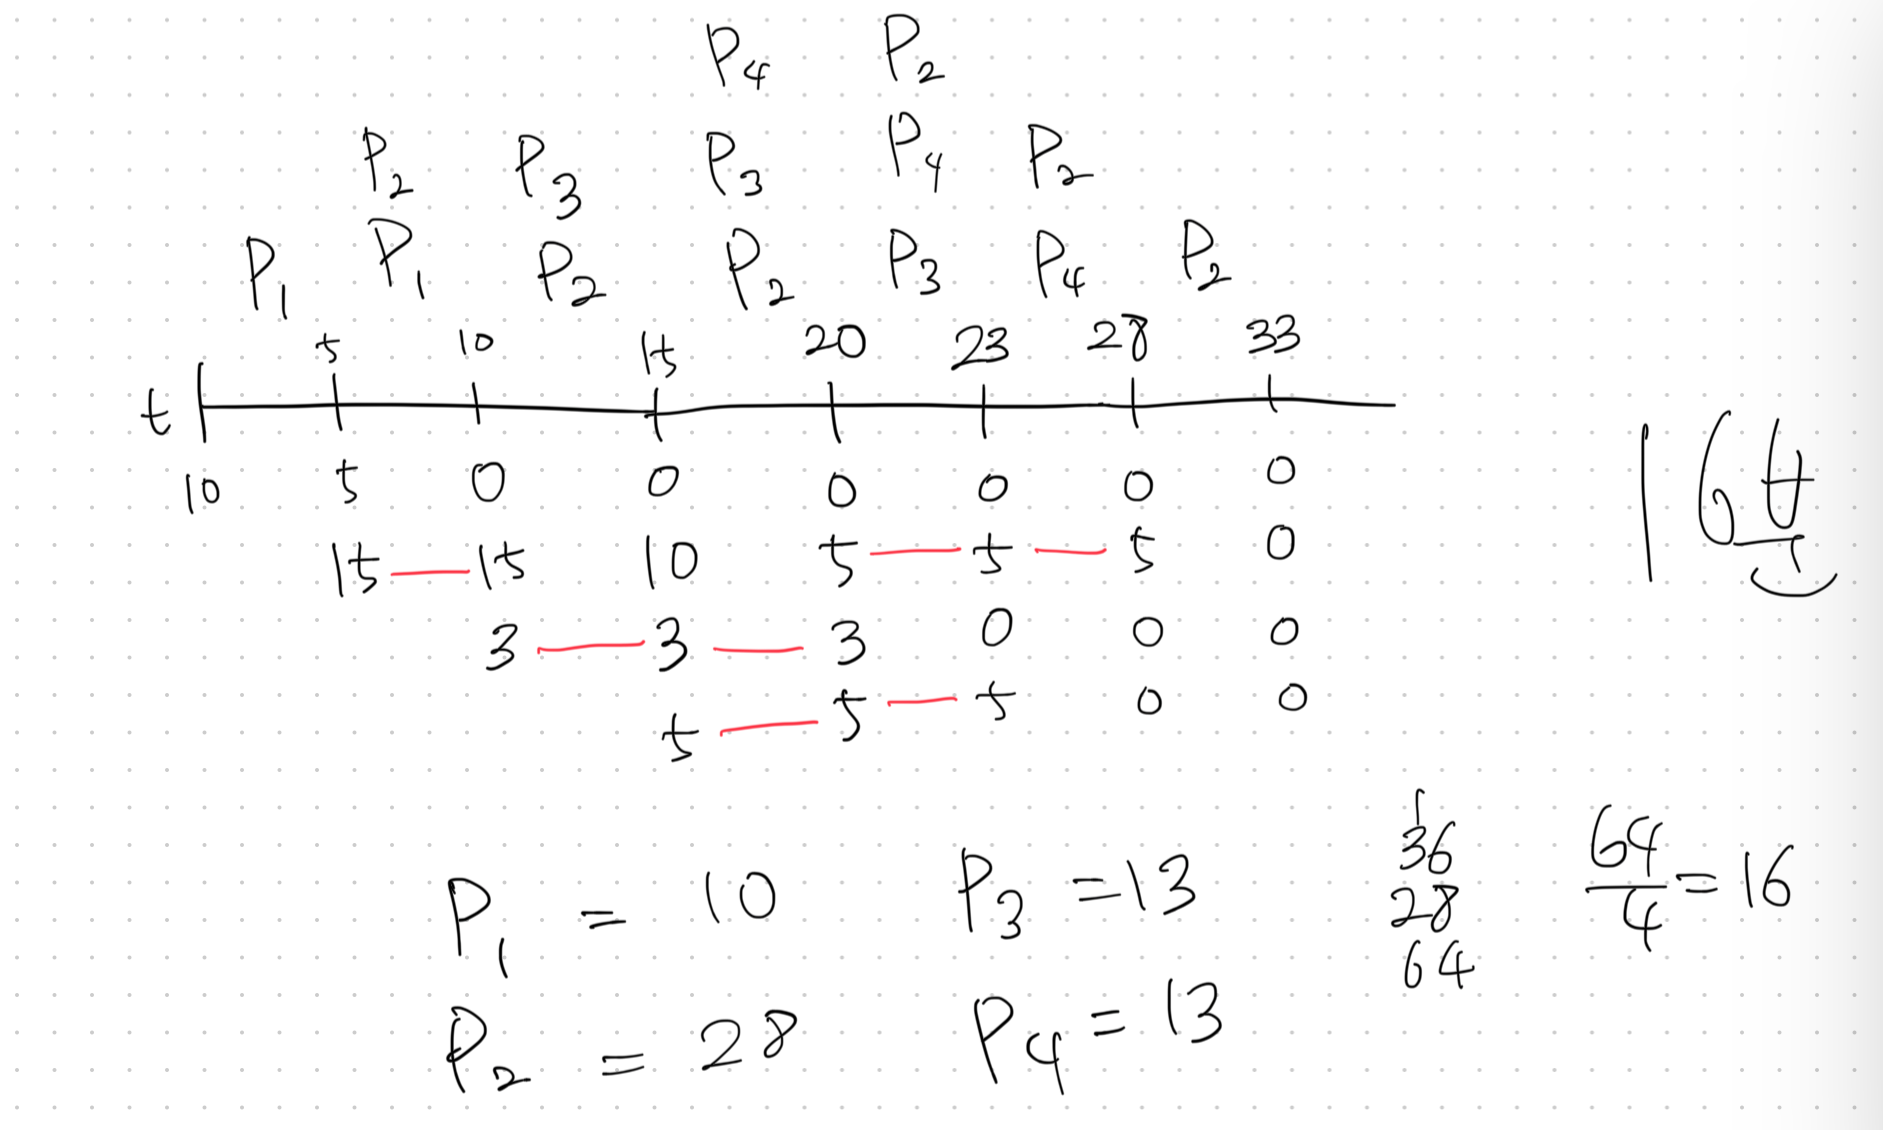 P4 P2
P2 P3 P3 P4 P2
P1 P1 P2 P2 P3 P4 P2
5 10 15 20 23 28 33
t
10 5 0 0 0 0 0 0
15 15 10 5 5 5 0
3 3 3 0 0 0
5 5 5 0 0
16
P1 = 10 P3 = 13
P2 = 28 P4 = 13
1
36
28
64
64/4 = 16